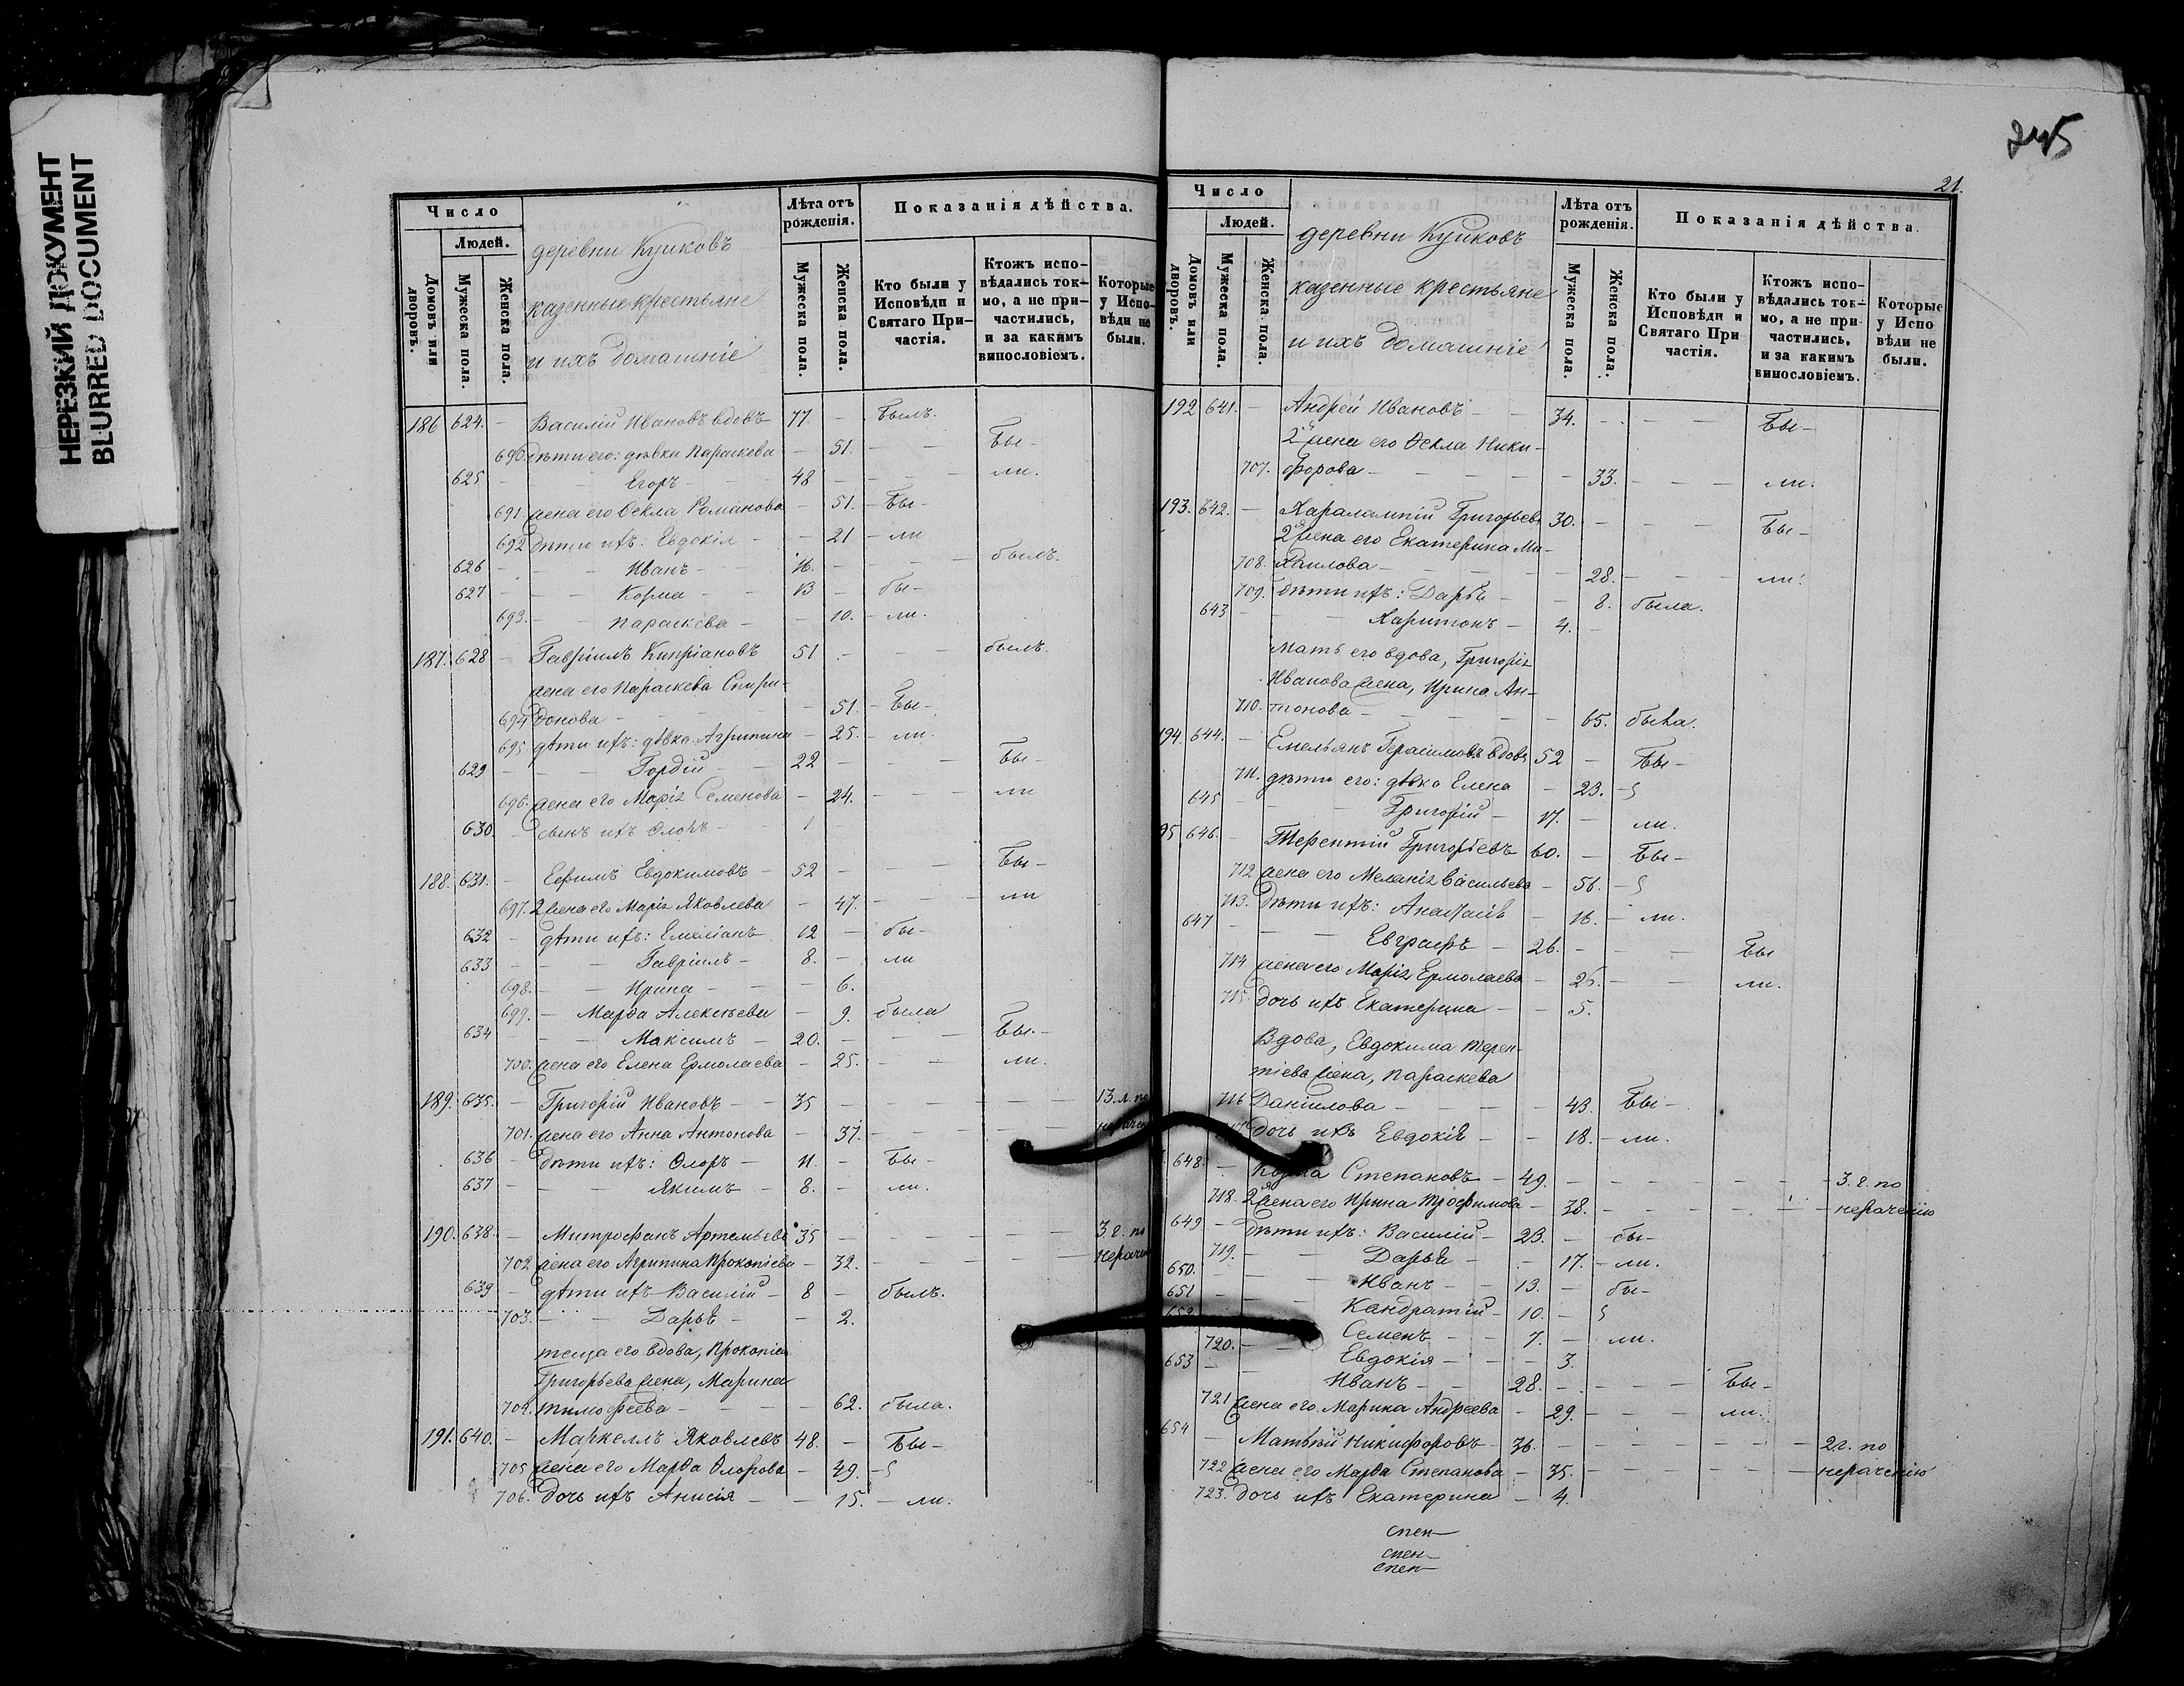 НЕРЕЗКИЙ ДОКУМЕНТ
BLURRED DOCUMENT
Число
Людей.
Домовъ или дворовъ.
Мужеска пола.
Женска пола.
деревни Кушковъ
казенные крестьяне
и ихъ домашніе
Лѣта отъ рожденія.
Мужеска пола.
Женска пола.
Показанія дѣйства.
Кто были у Исповѣди и Святаго Причастія.
Ктожъ исповѣдались токмо, а не причастились, и за какимъ винословіемъ.
Которые у Исповѣди не были.
186 624. – Василій Ивановъ вдовъ 77. – былъ.
690. дѣти его: дѣвка Параскева – 51. – – Бы-
625 – – Егоръ – 48 – – – ли.
691. жена его Ѳекла Романова – 51. – Бы-
692 дѣти ихъ: Евдокія – – 21 – ли
626 – – Иванъ – – 16. – – – былъ.
627 – – Козма – – 13 – бы-
693. – – Параскева – – 10. – ли.
187. 628 – Гавріилъ Кипріановъ 51 – – – былъ.
жена его Параскева Спири-
694 донова – – – 51. – Бы-
695. дѣти ихъ: дѣвка Агрипина – 25. – ли.
629 – – Гордій – 22 – – – Бы-
696. жена его Марія Семенова – 24. – – – ли
630. – сынъ ихъ Флоръ – – 1
188. 631. – Ефимъ Евдокимовъ – 52 – – – Бы-
697. 2 жена его Марія Яковлева – 47. – – – ли
632 – дѣти ихъ: Емеліанъ 12 – бы-
633 – – Гавріилъ – 8. – ли
698. – – Ирина – – – 6.
699. – Марѳа Алексѣева – 9. была
634 – – Максимъ – 20. – – – Бы-
700. жена его Елена Ермолаева – 25. – – ли.
189. 635. – Григорій Ивановъ – – 35 – – – – – 13. л. по
701. жена его Анна Антонова – 37. – – – – – нерачен
636 – дѣти ихъ: Флоръ – 11. – Бы-
637 – – Якимъ – 8. – ли.
190. 638. – Митрофанъ Артемьевъ 35 – – – – – 3 г. по
702 жена его Агрипина Прокопіева – 32. – – – – нерачен
639 – дѣти ихъ Василій – 8 – былъ.
703. – – Дарья – – 2.
теща его вдова, Прокопія
Григорьева жена, Марина
704. Тимофеева – – – 62. была.
191. 640. – Маркеллъ Яковлевъ 48. – Бы-
705 жена его Марѳа Флорова – 49. –
706. дочь ихъ Анисія – – 15. – ли.
245
21.
Число
Людей.
Домовъ или дворовъ.
Мужеска пола.
Женска пола.
деревни Кушковъ
казенные крестьяне
и ихъ домашніе
Лѣта отъ рожденія.
Мужеска пола.
Женска пола.
Показанія дѣйства.
Кто были у Исповѣди и Святаго При частія.
Ктожъ исповѣдались токмо, а не причастились, и за какимъ винословіемъ.
Которые у Испо вѣди не были.
192 641. – Андрей Ивановъ – – 34. – – – Бы-
2я жена его Ѳекла Ники-
707. форова – – – – 33. – – – ли.
193. 642. – Харалампій Григорьевъ 30. – – – Бы-
2я жена его Екатерина Ми-
708. хаилова – – – – 28. – – – ли.
709. дѣти ихъ: Дарья – – 8. была.
643 – – Харитонъ – 4. –
Мать его вдова, Григорія
Иванова жена, Ирина Ан-
710. тонова – – – – 65. была.
194. 644. – Емельянъ Герасимовъ вдовъ 52 – Бы-
711. дѣти его: дѣвка Елена – 23. –
645 – – Григорій – 17. – ли.
95. 646. – Терентій Григорьевъ 60. – Бы-
712 жена его Меланія Васильева – 56. –
713. дѣти ихъ: Анастасія – 16. – ли.
647 – – Евграфъ – 26. – – – Бы
714 жена его Марія Ермолаева – 25. – – ли.
715. дочь ихъ Екатерина – – 5.
Вдова, Евдокима Терен-
тіева жена, Параскева
716 Даніилова – – – 43. Бы-
дочь ихъ Евдокія – – 18. – ли.
648. – Козма Степановъ – 49. – – – – – 3. г. по
718. 2я жена его Ирина Трофимова – 38. – – – – нераченію
649 – дѣти ихъ: Василій – 23. – бы-
719. – – Дарья – – 17. – ли.
650. – – Иванъ – – 13. – бы-
651 – – Кандратій – 10. –
652 – – Семенъ – – 7. – ли.
720. – – Евдокія – – – 3.
653 – – Иванъ – – 28. – – – Бы-
721 жена его Марина Андреева – 29. – – – ли.
654 – Матвѣй Никифоровъ – 36. – – – – – 2 г. по
722 жена его Марѳа Степанова – 35. – – – – нераченію
723. дочь ихъ Екатерина – 4.